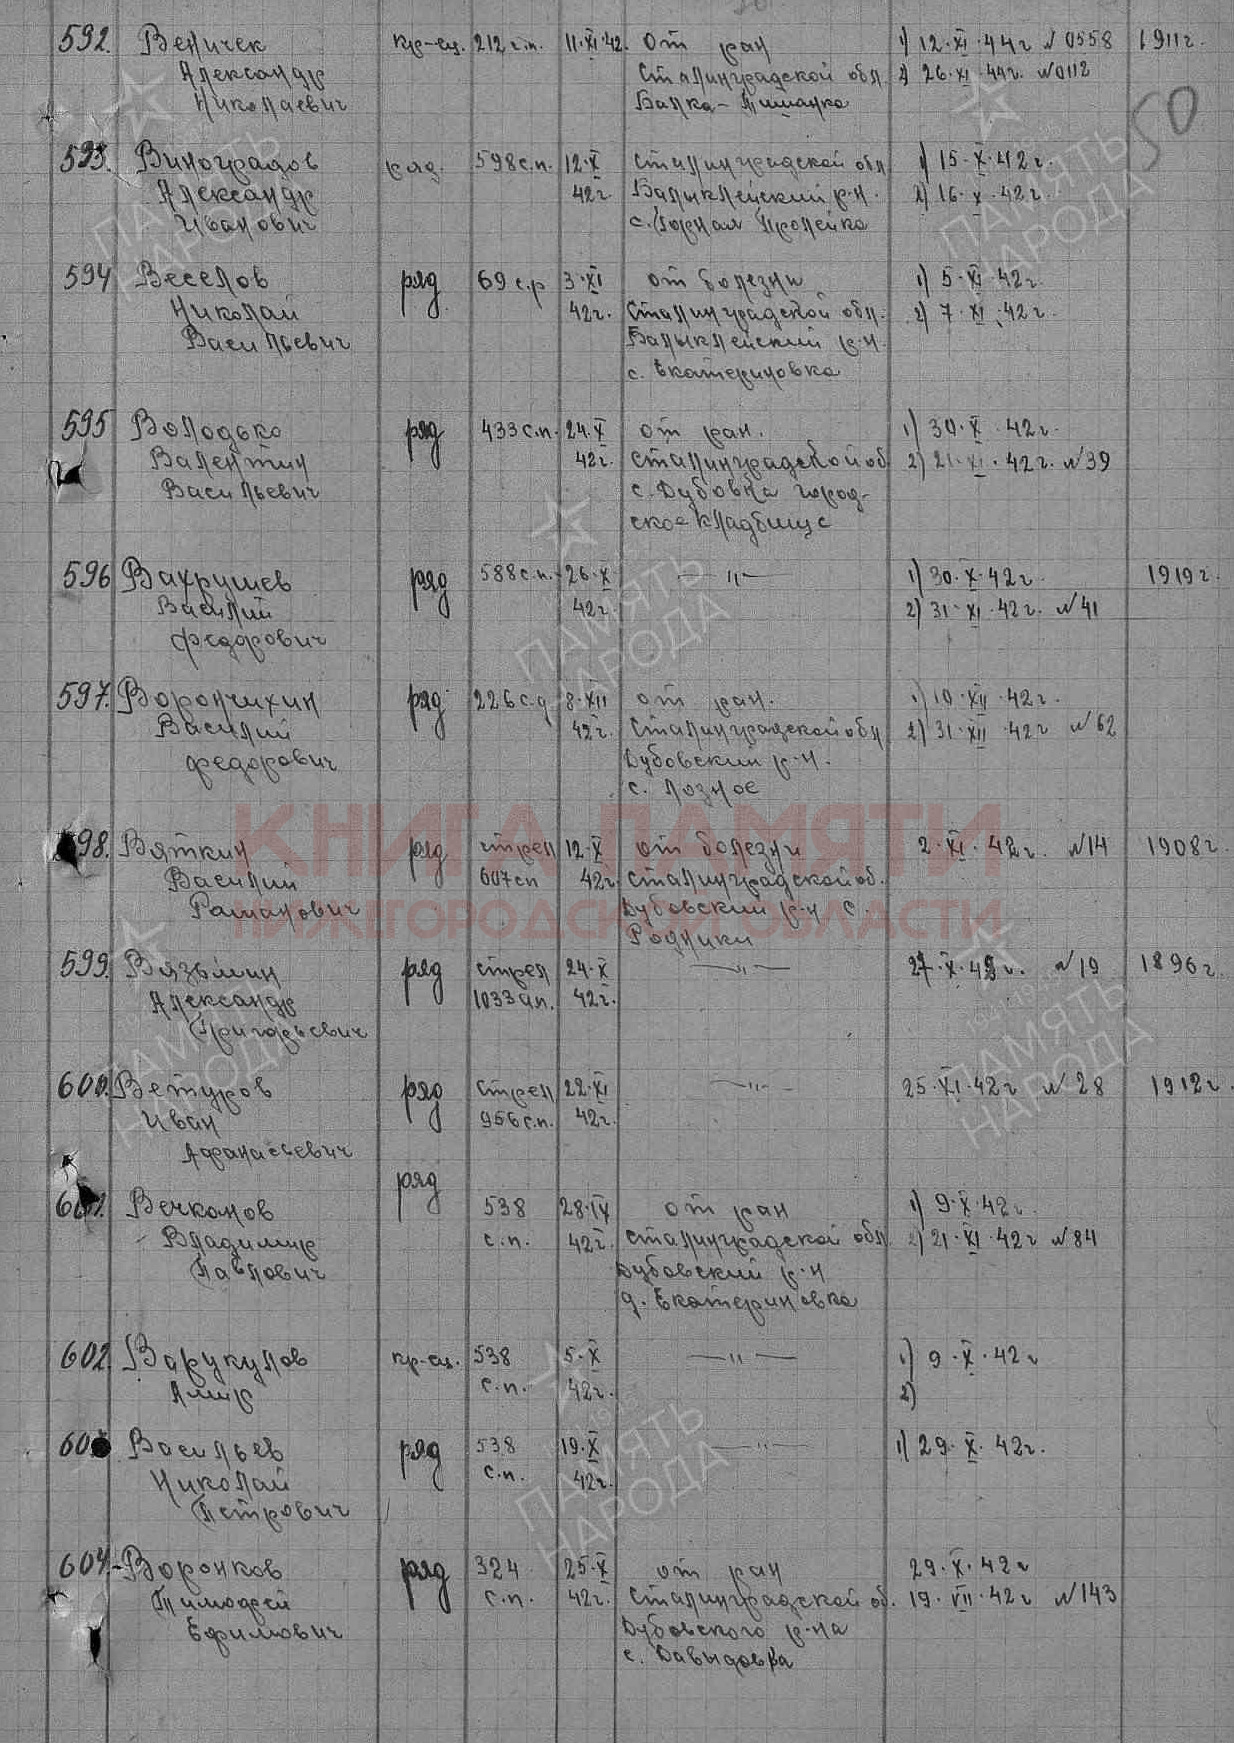 592. Веничек кр-ец. 212 г.п. 11·XI·42. от ран 1) 12·XI·44г №0558 1911г.
Александр Сталинградской обл. 2) 26·XI·44г. №0112
Николаевич Балка-
50
593. Виноградов ряд. 598 с.п. 12·X Сталинградской обл 1) 15·X·42г.
Александр 42г. Балыклейский р-н. 2) 16·X·42г.
Иванович с. Горная Пролейка
594 Веселов ряд 69 с.р 3·XI от болезни 1) 5·XI·42г.
Николай 42г. Сталинградской обл. 2) 7·XI·42г.
Васильевич Балыклейский р-н.
с. Екатериновка
595 Володько ряд 433 с.п. 24·X от ран. 1) 30·X·42г.
Валентин 42г. Сталинградской об 2) 21·XI·42г. №39
Васильевич с. Дубовка город-
ское кладбище
596 Вахрушев ряд 588 с.п. 26·X —"— 1) 30·X·42г. 1919г.
Василий 42г. 2) 31·XI·42г. №41
Федорович
597.Ворончихин ряд 226 с.д 8·XII от ран. 1) 10·XII·42г.
Василий 42г. Сталинградской обл 2) 31·XII·42г №62
Федорович Дубовский р-н.
с. Лозное
КНИГА ПАМЯТИ
НИЖЕГОРОДСКОЙ ОБЛАСТИ
98. Вяткин ряд стрел 12·X от болезни 2·XI·42г. №14 1908г.
Василий 607 сп 42г. Сталинградской об.
Раманович Дубовский р-н с.
Родники
599. Вязьмин ряд стрел 24·X —"— 27·X·42г. №19 1896г
Александр 1033 ап. 42г.
Григорьевич
600. Ветуров ряд стрел 22·XI —"— 25·XI·42г №28 1912г
Иван 956 с.п. 42г.
Афанасьевич
601. Вечканов ряд 538 28·IX от ран 1) 9·X·42г.
Владимир с.п. 42г. Сталинградской обл. 2) 21·XI·42г №84
Павлович Дубовский р-н
д. Екатериновка
602. Варукулов кр-ец. 538 5·X —"— 1) 9·X·42г
Амир с.п. 42г. 2)
60 Васильев ряд 538 19·X —"— 1) 29·X·42г.
Николай с.п. 42г.
Петрович
604.- Воронков ряд 324 25·X от ран 29·X·42г
Тимофей с.п. 42г. Сталинградской об. 19·VII·42г №143
Ефимович Дубовского р-на
с. Давыдовка
ПАМЯТЬ
НАРОДА